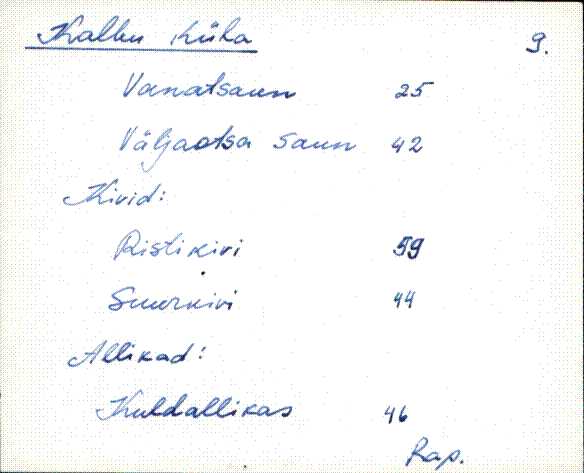 Kallu küla 9.
Vanatsaun 25
Väljaotsa saun 42
Kivid:
Ristikivi 59
Suurkivi 44
Allikad:
Kuldallikas 46
Rap.